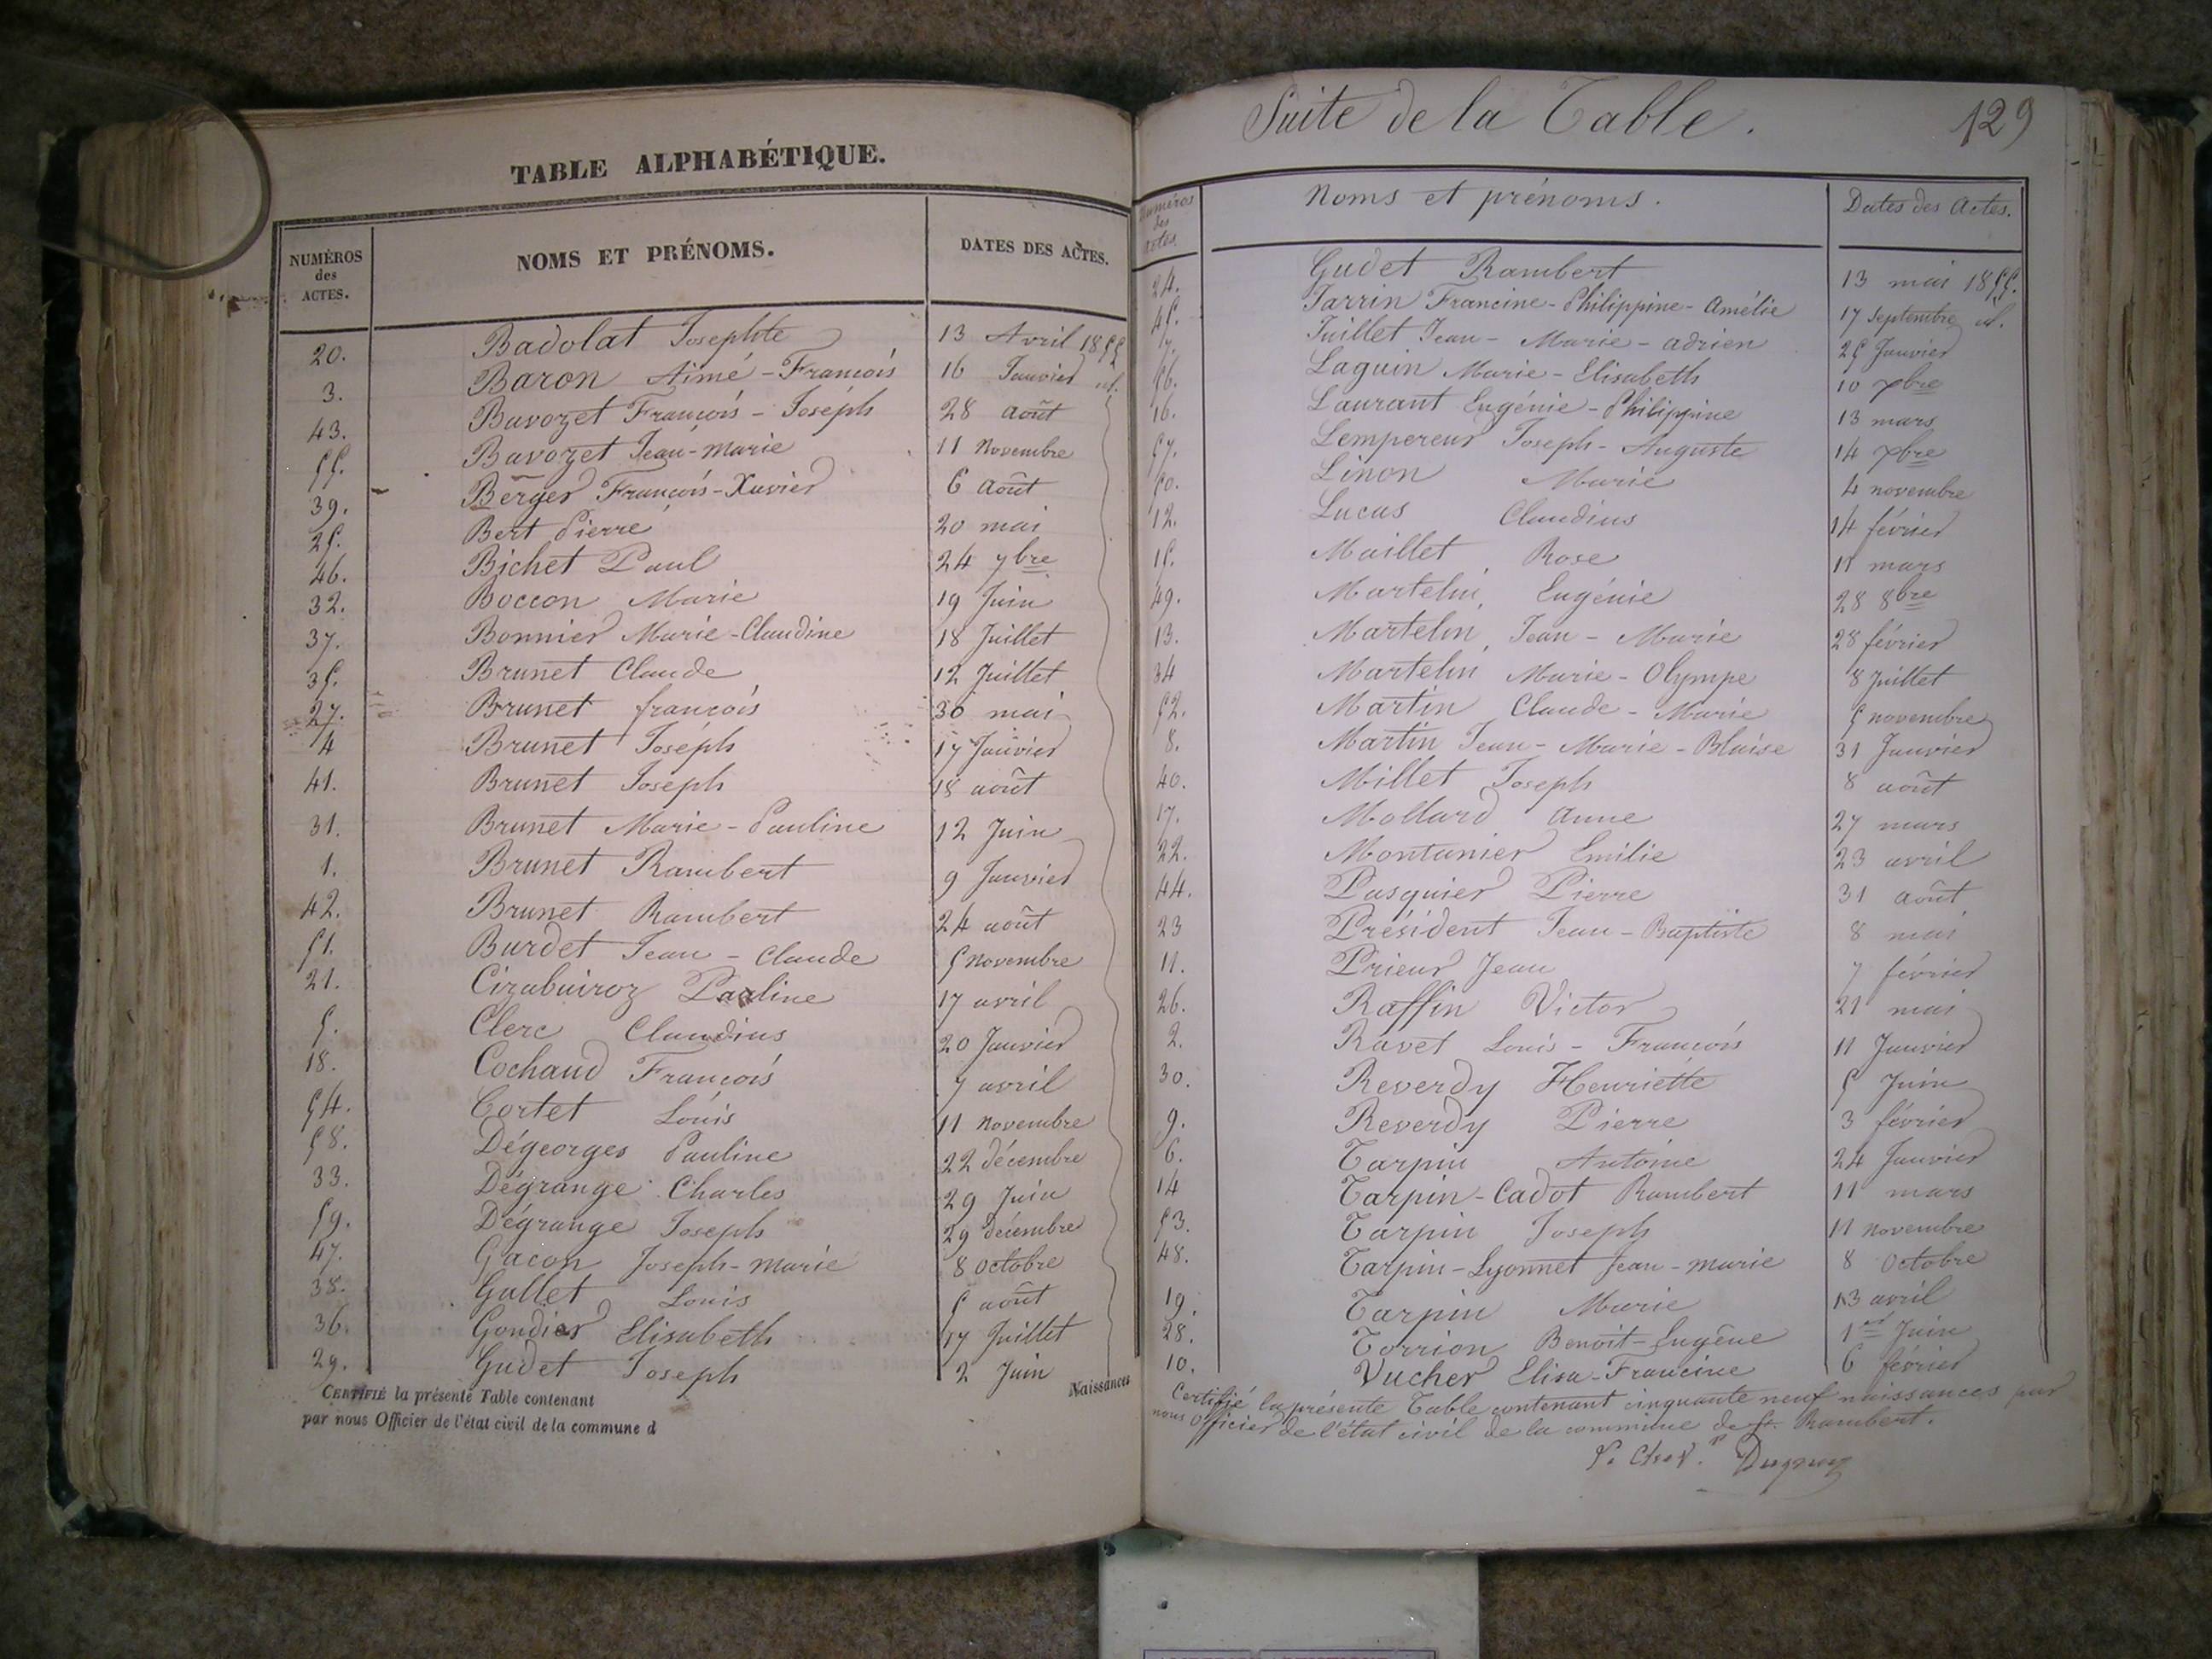 TABLE ALPHABÉTIQUE.
NUMÉROS des ACTES. NOMS ET PRÉNOMS. DATES DES ACTES.
20. Badolat Josephte 13 Avril 1855
3. Baron Aimé-François 16 Janvier id.
43. Bavozet François-Joseph 28 août
55. Bavozet Jean-Marie 11 Novembre
39. Berger François-Xavier 6 Août
25. Bert Pierre 20 mai
46. Bichet Paul 24 7bre
32. Boccon Marie 19 Juin
37. Bonnier Marie-Claudine 18 Juillet
35. Brunet Claude 12 Juillet
27. Brunet françois 30 mai
4 Brunet Joseph 17 Janvier
41. Brunet Joseph 18 août
31. Brunet Marie-Pauline 12 Juin
1. Brunet Rambert 9 Janvier
42. Brunet Rambert 24 août
51. Burdet Jean-Claude 5 Novembre
21. Cizabuiroz Pauline 17 avril
5. Clerc Claudius 20 Janvier
18. Cochaud François 7 avril
54. Cortet Louis 11 Novembre
58. Dégeorges Pauline 22 décembre
33. Dégrange Charles 29 Juin
59. Dégrange Joseph 29 décembre
47. Gacon Joseph-marie 8 octobre
38. Gallet Louis 5 août
36. Gondier Elisabeth 17 Juillet
29. Gudet Joseph 2 Juin
Naissances
CERTIFIÉ la présente Table contenant
par nous Officier de l'état civil de la commune d
Suite de la Table. 129
Numéros des actes Noms et prénoms. Dates des Actes.
24. Gudet Rambert 13 mai 1855.
45. Jarrin Francine-Philippine-Amélie 17 Septembre id.
7. Juillet Jean-Marie-adrien 25 Janvier
56. Laguin Marie-Elisabeth 10 Xbre
16. Laurant Eugénie-Philippine 13 mars
57. Lempereur Joseph-Auguste 14 Xbre
50. Linon Marie 4 novembre
12. Lucas Claudius 14 février
15. Maillet Rose 11 mars
49. Martelin Eugénie 28 8bre
13. Martelin Jean-Marie 28 février
34 Martelin Marie-Olympe 8 Juillet
52. Martin Claude-Marie 5 novembre
8. Martin Jean-Marie-Blaise 31 Janvier
40. Millet Joseph 8 août
17. Mollard Anne 27 mars
22. Montanier Emilie 23 avril
44. Pasquier Pierre 31 août
23 Président Jean-Baptiste 8 mai
11. Prieur Jean 7 février
26. Raffin Victor 21 mai
2. Ravet Louis-François 11 Janvier
30. Reverdy Henriette 5 Juin
9. Reverdy Pierre 3 février
6. Tarpin Antoine 24 Janvier
14 Tarpin-Cadot Rambert 11 mars
53. Tarpin Joseph 11 novembre
48. Tarpin-Lyonnet Jean-marie 8 Octobre
19. Tarpin Marie 13 avril
28. Torrion Benoît-Eugène 1er Juin
10. Vucher Elisa-Francine 6 février
Certifié la présente Table contenant cinquante neuf naissances par
nous Officier de l'état civil de la commune de St Rambert.